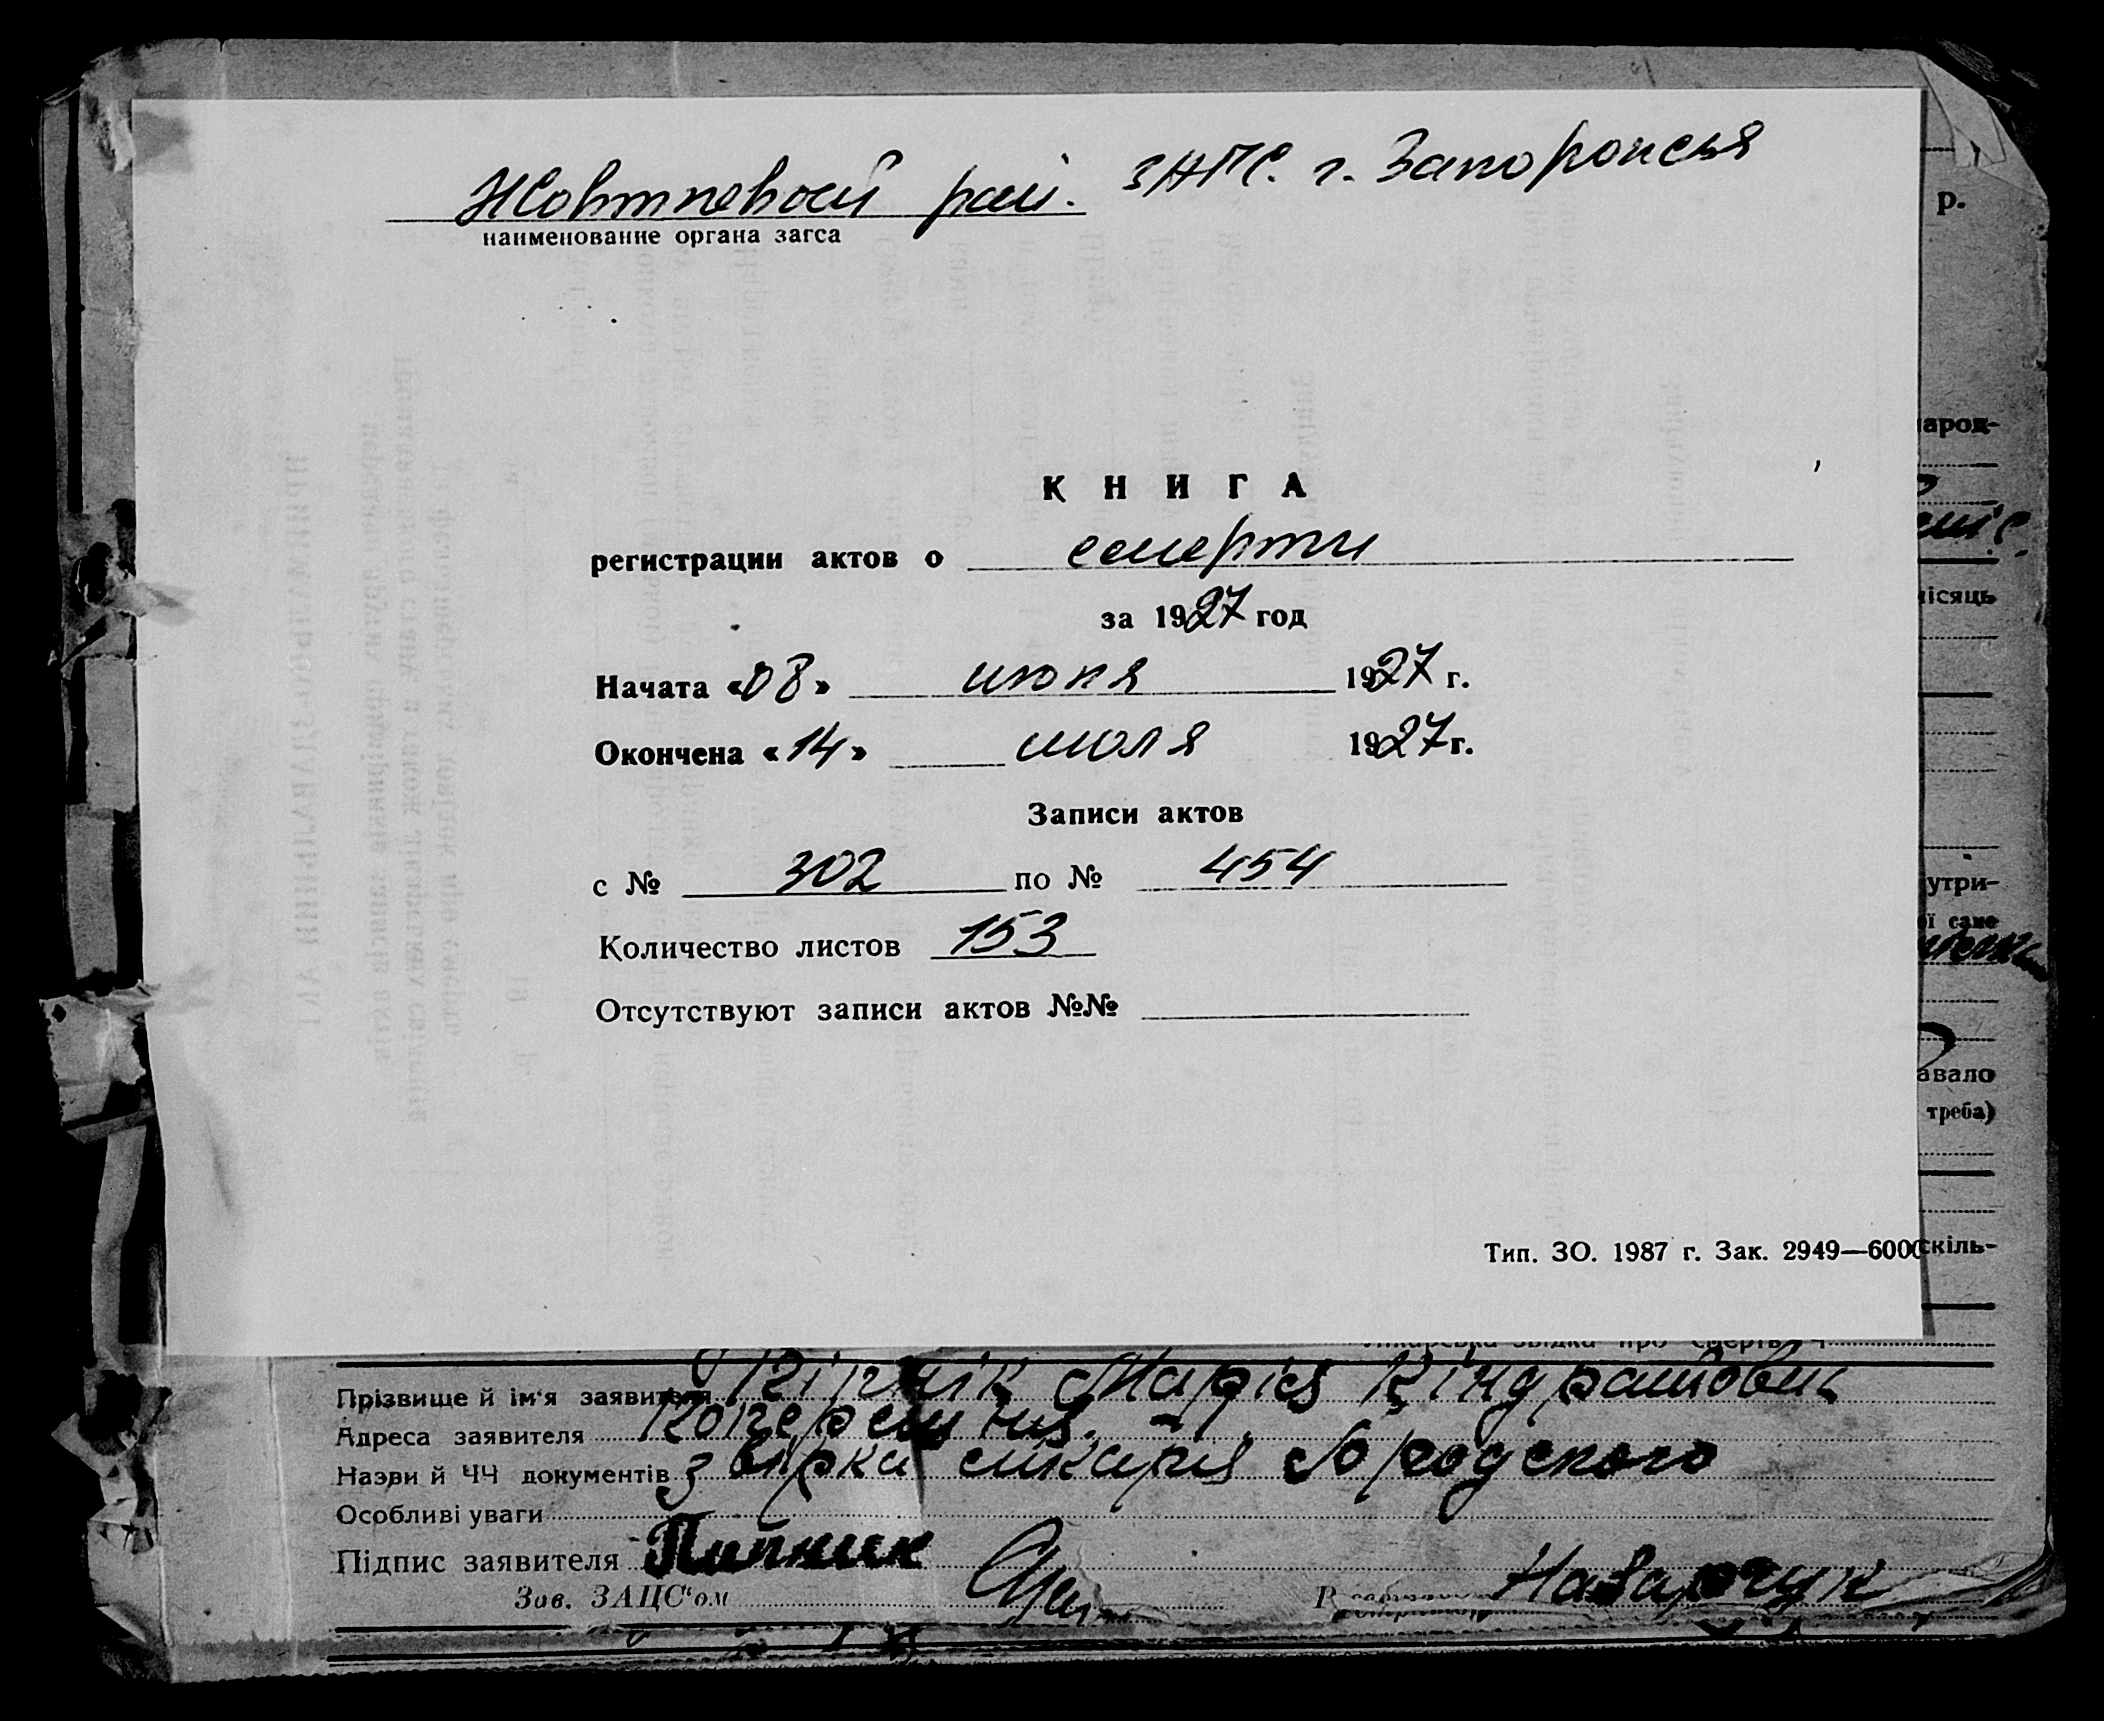 Жовтневый рай. ЗАГС. г. Запорожья
наименование органа загса
КНИГА
регистрации актов о смерти
за 1927 год
Начата «08» июня 1927 г.
Окончена «14» июля 1927 г.
Записи актов
с № 302 по № 454
Количество листов 153
Отсутствуют записи актов №№
Тип. ЗО. 1987 г. Зак. 2949—6000
р.
народ-
місяць
утри-
ї саме
авало
треба)
скіль-
Лікарська звідка про смерть Ч
Прізвище й ім'я заявителя Марія Кіндратовна
Адреса заявителя
Назви й ЧЧ документів
Особливі уваги
Підпис заявителя
Зав. ЗАЦС'ом Назарчук